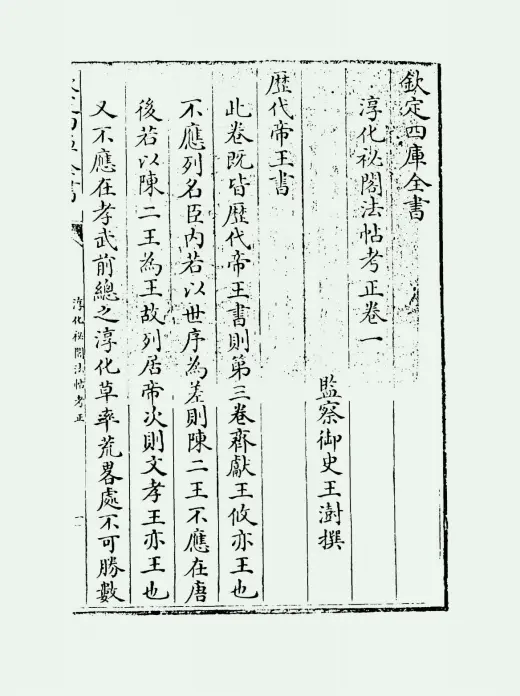 欽定四庫全書
淳化祕閣法帖考正卷一
監察御史王澍撰
歴代帝王書
此卷既皆歴代帝王書則第三卷齊獻王攸亦王也
不應列名臣内若以世序為差則陳二王不應在唐
後若以陳二王為王故列居帝次則文孝王亦王也
又不應在孝武前總之淳化草率荒畧處不可勝數
淳化祕閣法帖考正